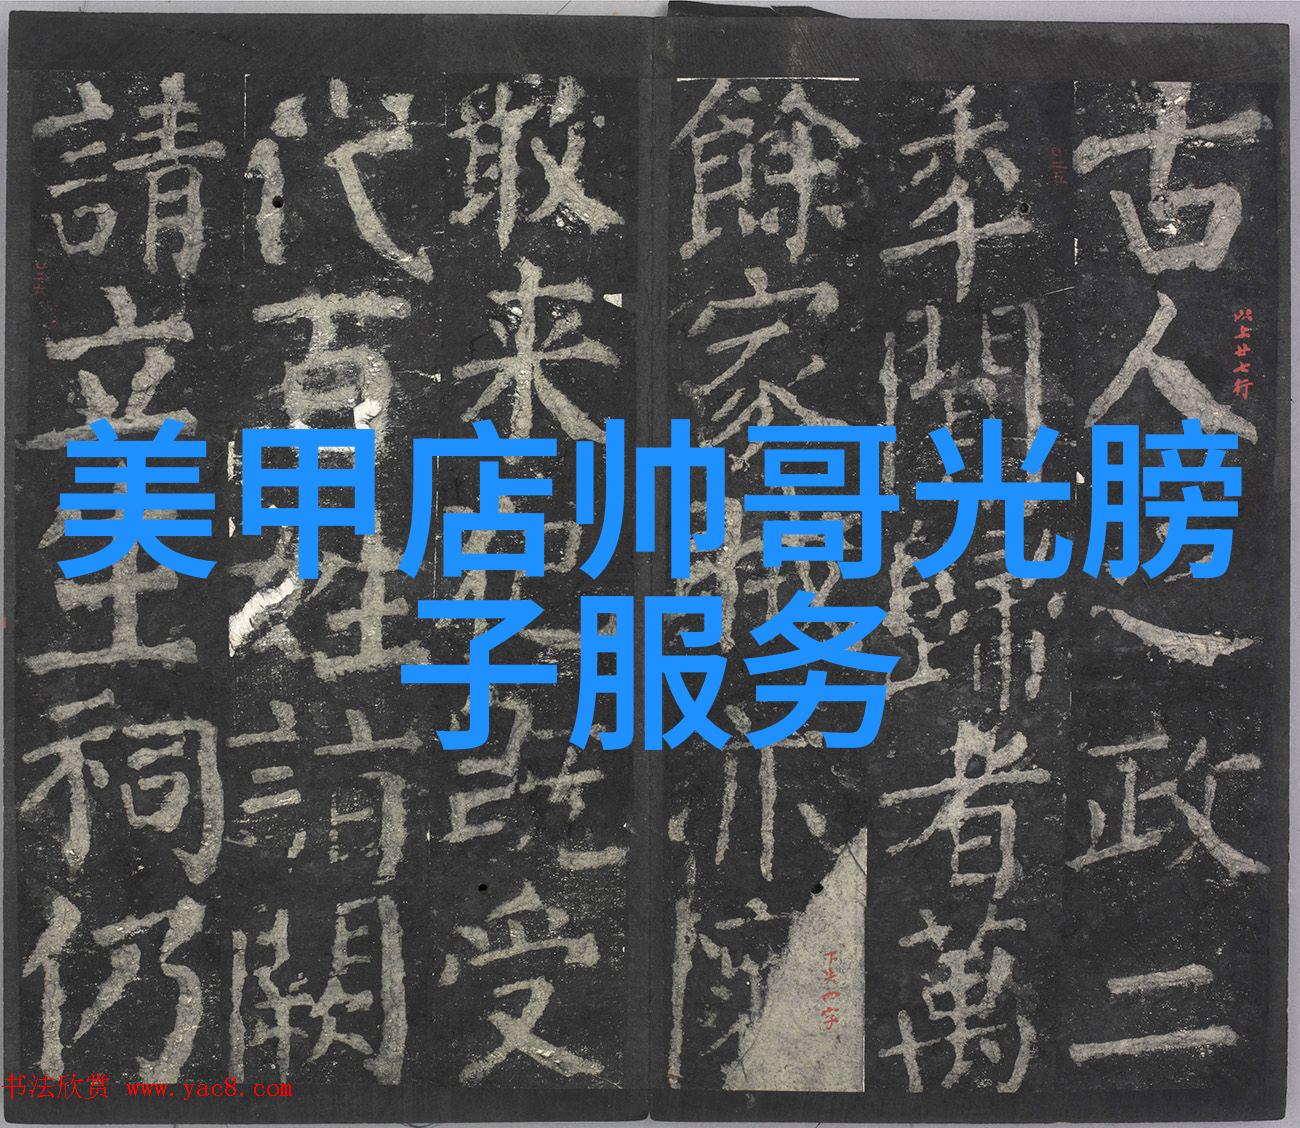 古人之政二
季間歸者萬
餘家賑亦除
敢来犯改受
代百姓詣闕
請立生祠仍
以上廿七行
下半四字
美甲店帅哥光膀
子服务
书法欣赏 www.yac8.com